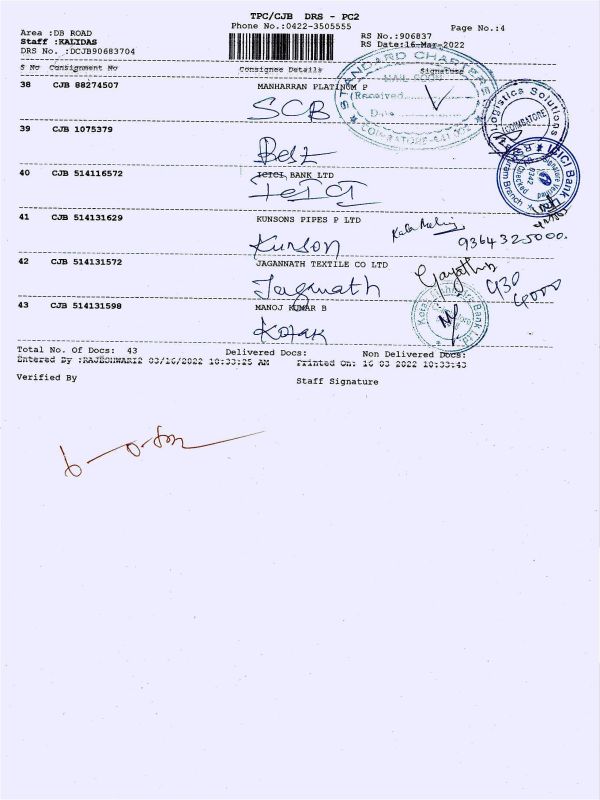 TPC/CJB DRS - PC2
Phone No.:0422-3505555
Page No.:4
Area :DB ROAD
RS No.:906837
Staff :KALIDAS
RS Date:16-Mar-2022
DRS No. :DCJB90683704
S No Consignment No Consignee Details Signature
38 CJB 88274507 MANHARRAN PLATINUM P
SCB
STANDARD CHARTERED
MAIL ROOM
Received
Date
COIMBATORE-641 002
Logistics Solutions
COIMBATORE
39 CJB 1075379
Best
40 CJB 514116572 ICICI BANK LTD
ICICI
ICICI Bank
Signature Verified
41 CJB 514131629 KUNSONS PIPES P LTD
Kunson
9364325000.
42 CJB 514131572 JAGANNATH TEXTILE CO LTD
Jaganath
Gayathri
930
4000
43 CJB 514131598 MANOJ KUMAR B
Kotak
Kotak Mahindra Bank Ltd
Total No. Of Docs: 43 Delivered Docs: Non Delivered Docs:
Entered By :RAJESHWARI2 03/16/2022 10:33:25 AM Printed On: 16 03 2022 10:33:43
Verified By
Staff Signature